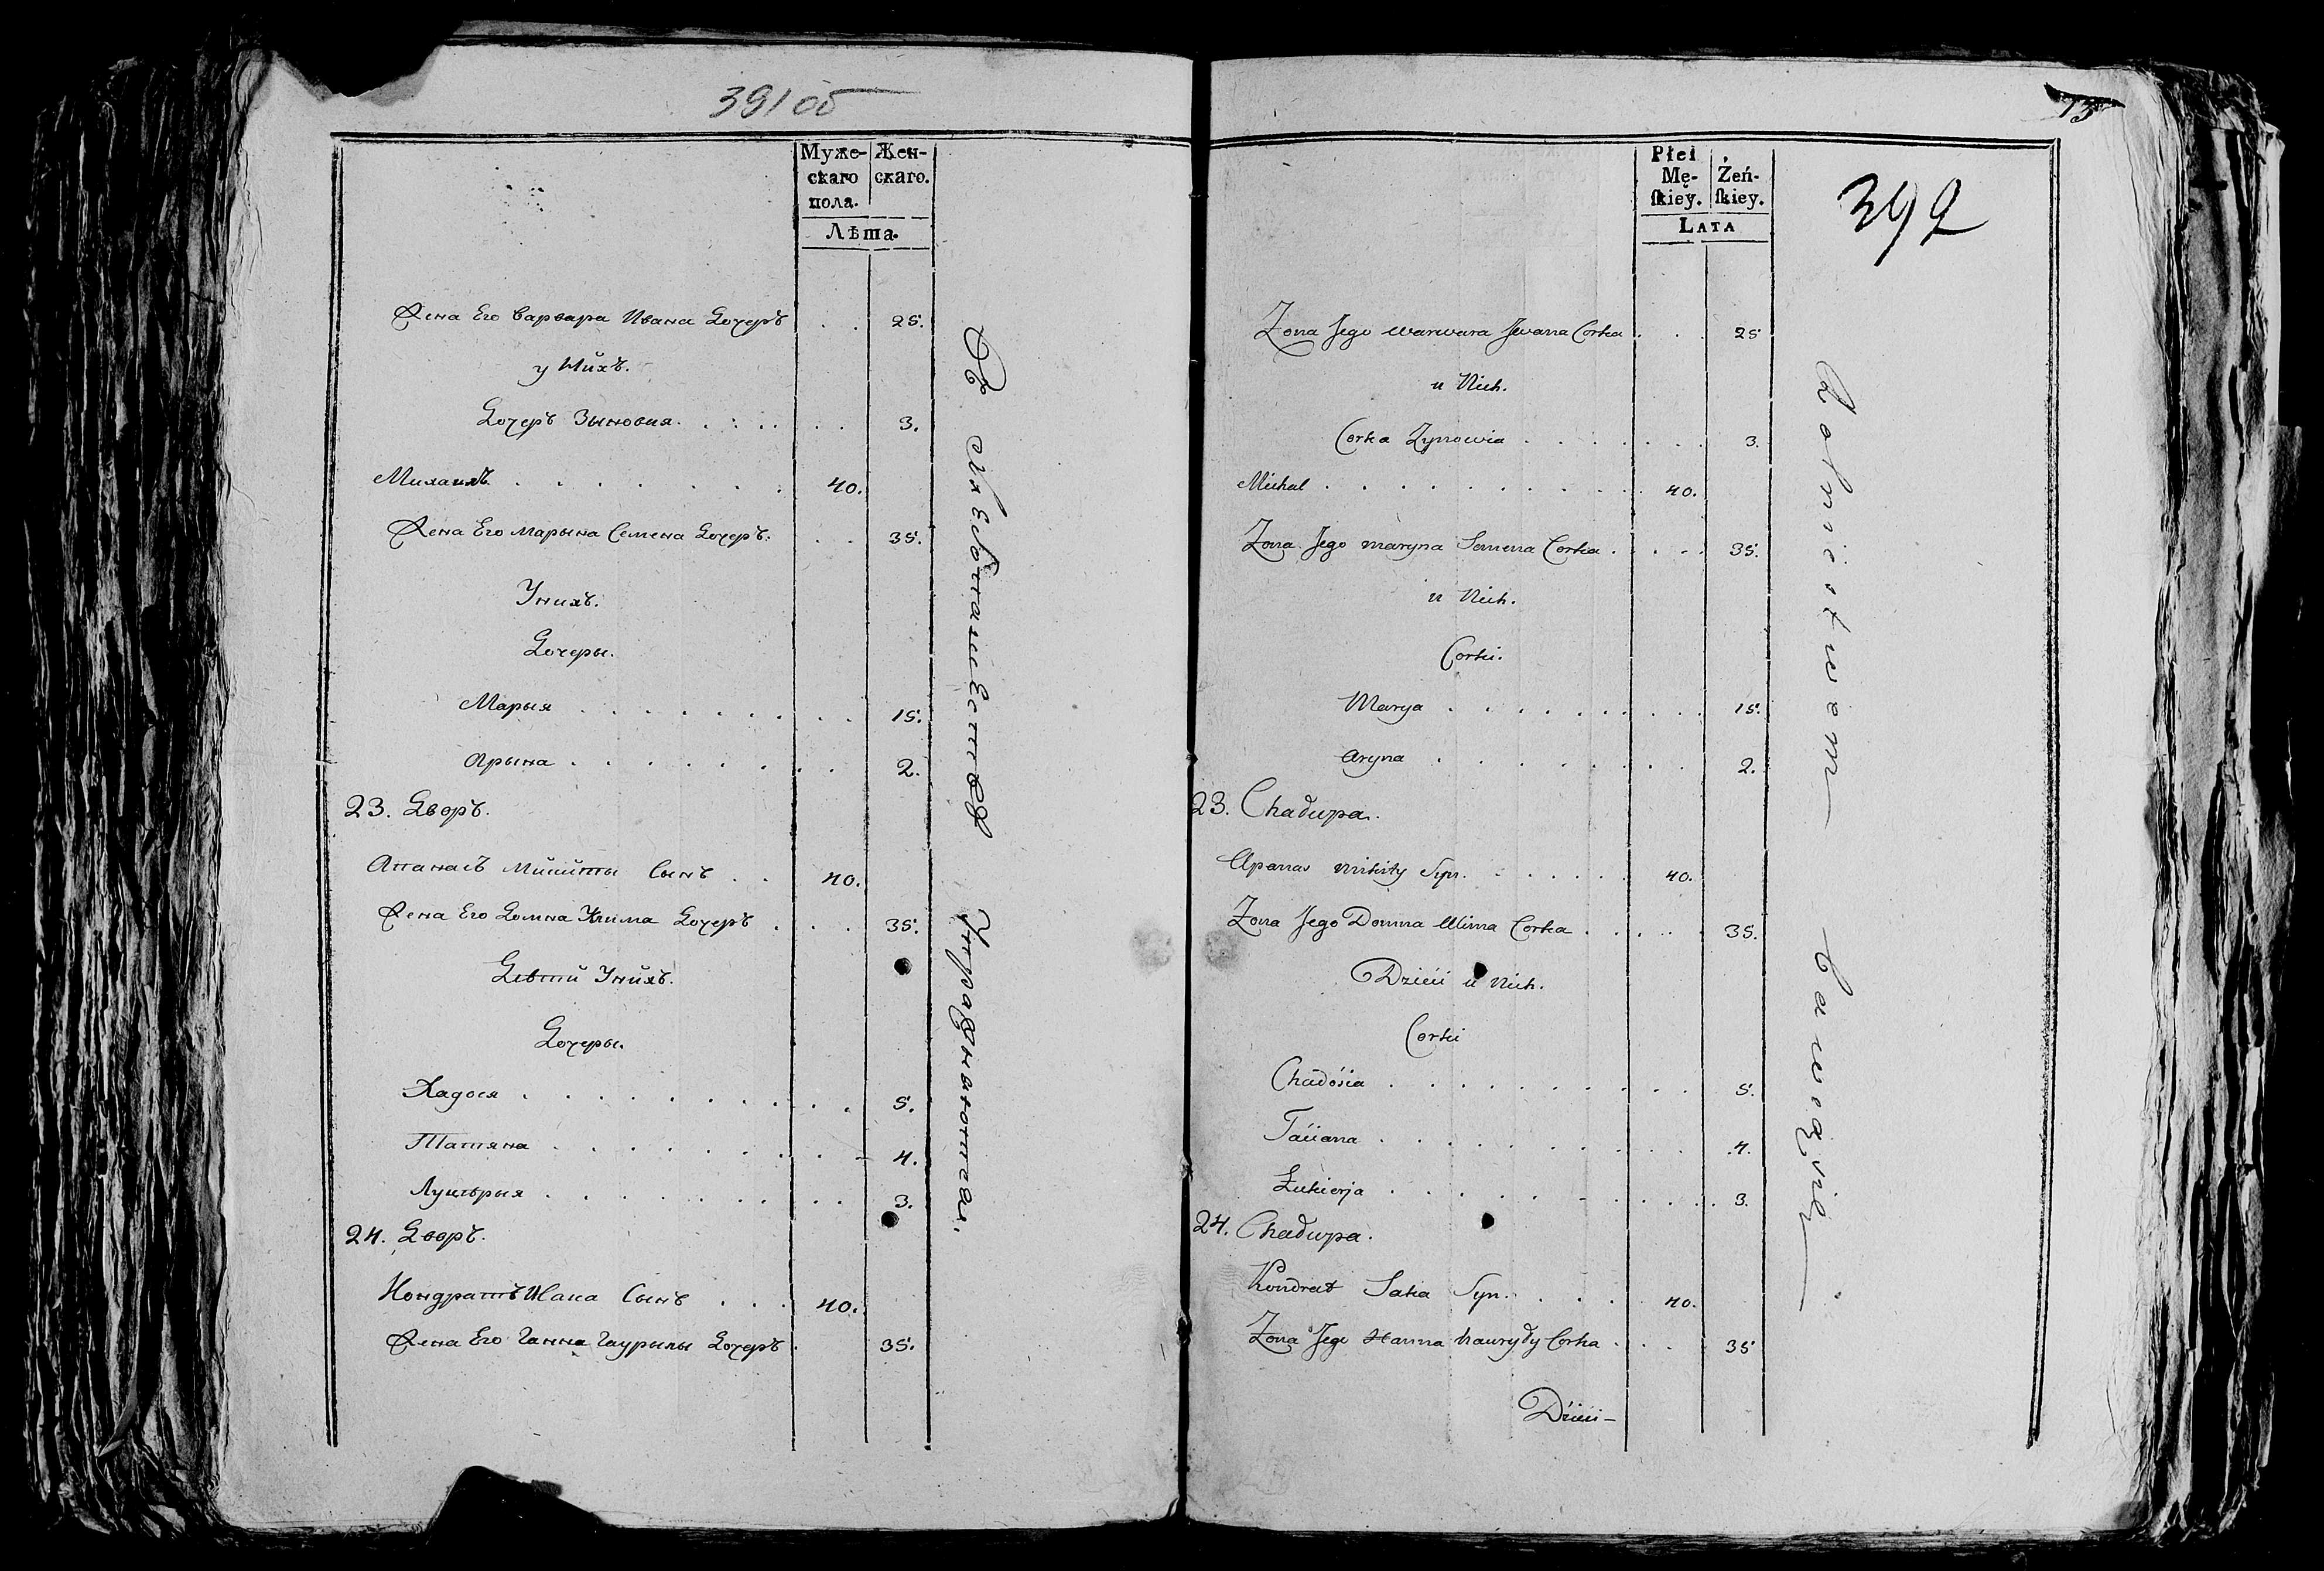 391 об
Муже-
скаго
пола.
Жен-
скаго.
Лѣта.
Жена Его Варвара Ивана Дочеръ . . 25.
у Нихъ.
Дочеръ Зыновия. . . . . . . 3.
Михаилъ. . . . . . . . 40.
Жена Его Марына Семена Дочеръ. . . 35.
Унихъ.
Дочеры.
Марыя . . . . . . . . . 15.
Арына . . . . . . . . 2.
23. Дворъ.
Апанасъ Микиты Сынъ . . 40.
Жена Его Домна Клима Дочеръ . . . 35.
Дѣти Унихъ.
Дочеры.
Хадося . . . . . . . . . . 5.
Татяна . . . . . . . . 4.
Лукѣрыя . . . . . . . . . 3.
24. Дворъ.
Кондратъ Исака Сынъ . . . 40.
Жена Его Ганна Гаурылы Дочеръ . 35.
Въ хлебопашестве Упражняютса.
73
392
Płci
Mę-
ſkiey.
Żeń-
ſkiey.
LATA
Zona Jego Warwara Jwana Corka . . . 25
u Nich.
Corka Zynowia . . . . . . . 3.
Michal . . . . . . . . . . 40.
Zona Jego Maryna Semena Corka . . . . 35.
u Nich.
Corki.
Marya . . . . . . . . . 15.
Aryna . . . . . . . . 2.
23. Chałupa.
Apanas Mikity Syn. . . . . . 40.
Zona Jego Domna Klima Corka . . . . . 35.
Dzieci u Nich.
Corki
Chadosia . . . . . . . . . . 5.
Taciana . . . . . . . . . . 4.
Łukierja . . . . . . . . . . 3.
24. Chałupa.
Kondrat Saka Syn. . . . . 40.
Zona Jego Hanna hauryły Corka . . . 35
Dzieci-
Rolnictwem bawią się.